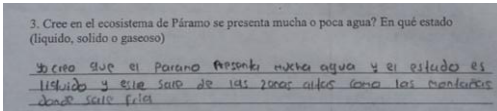 3. Cree en el ecosistema de Páramo se presenta mucha o poca agua? En qué estado
(liquido, solido o gaseoso)
yo creo que el Paramo Presenta mucha agua y el estado es
liquido y este sale de las zonas altas como las montañas
donde sale fria